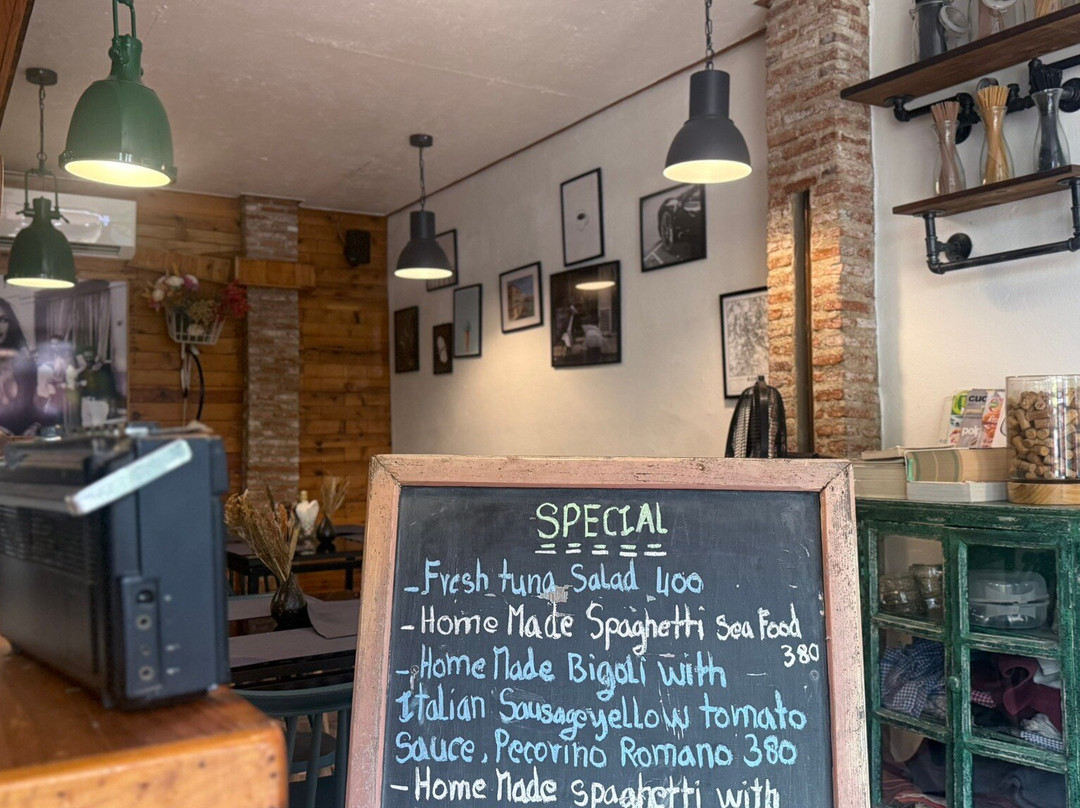 SPECIAL
- Fresh tuna Salad 400
- Home Made Spaghetti Sea Food
380
- Home Made Bigoli with
Italian Sausage yellow tomato
Sauce, Pecorino Romano 380
- Home Made spaghetti with